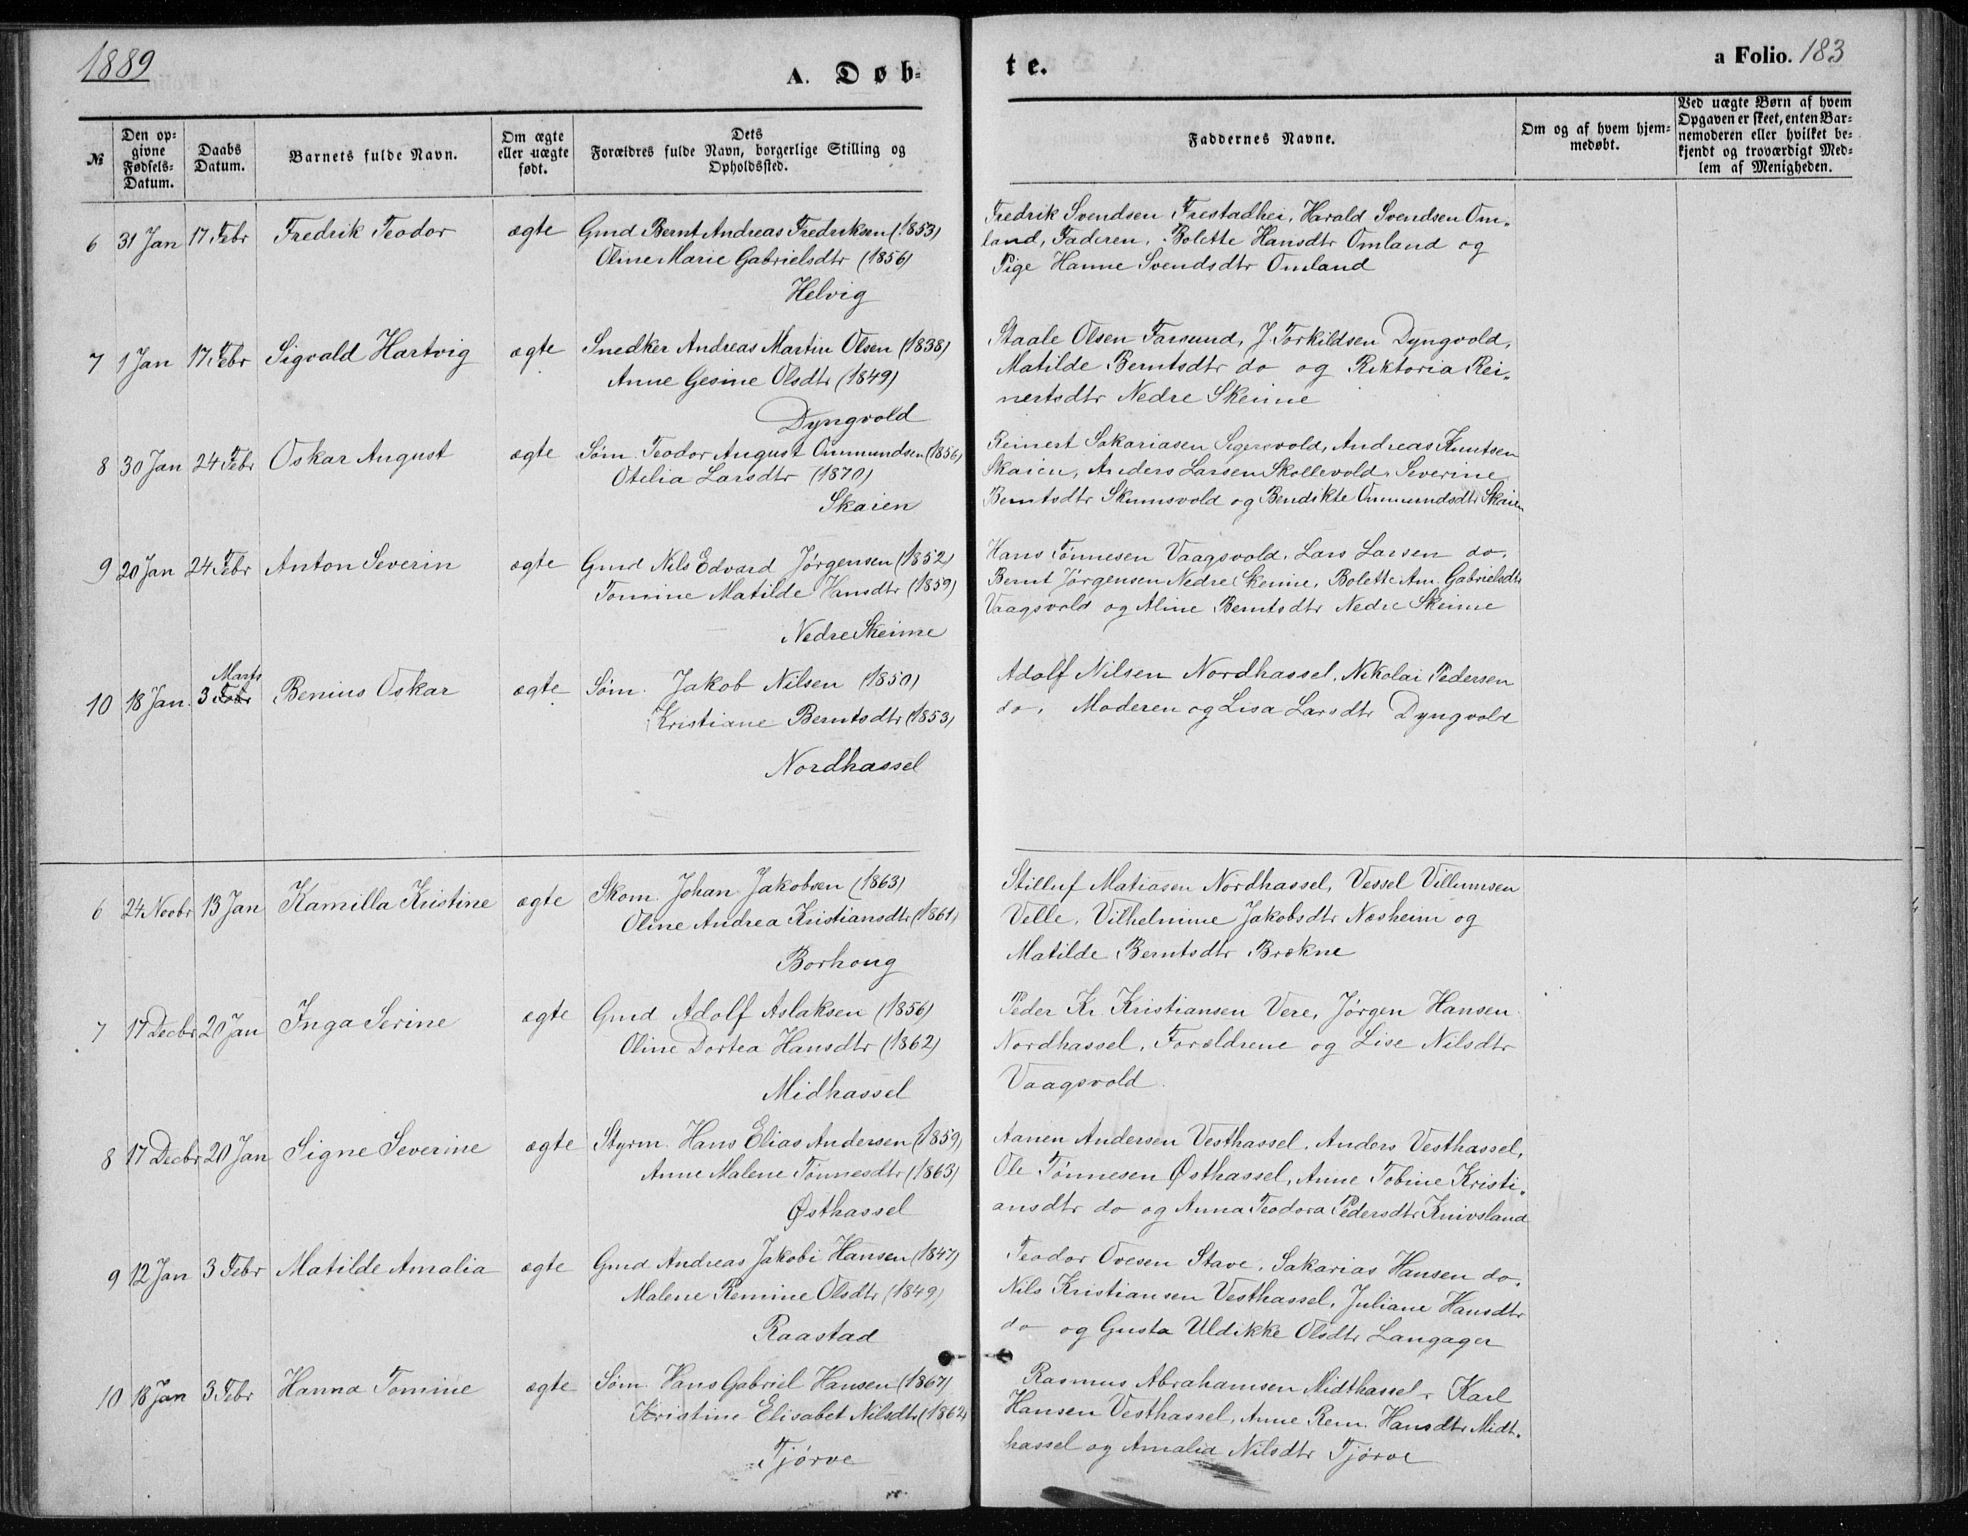 1889
A. Døb-
te.
a Folio. 183
№
Den op-
givne
Fødsels-
Datum.
Daabs
Datum.
Barnets fulde Navn.
Om ægte
eller uægte
født.
Dets
Forældres fulde Navn, borgerlige Stilling og
Opholdssted.
Faddernes Navne.
Om og af hvem hjem-
medøbt.
Ved uægte Børn af hvem
Opgaven er skeet, enten Bar-
nemoderen eller hvilket be-
kjendt og troværdigt Med-
lem af Menigheden.
6 31 Jan 17 Febr Fredrik Teodor ægte Gmd Bernt Andreas Fredriksen (1853)
Oline Marie Gabrielsdtr (1856)
Helvig
Fredrik Svendsen Frestadhei, Harald Svendsen Om-
land, Faderen, Bolette Hansdtr Omland og
Pige Hanne Svendsdtr Omland
7 1 Jan 17 Febr Sigvald Hartvig ægte Snedker Andreas Martin Olsen (1838)
Anne Gesine Olsdtr (1849)
Dyngvold
Staale Olsen Farsund, J. Torkildsen Dyngvold,
Matilde Berntsdtr do og Riktoria Rei-
nertsdtr Nedre Skeime
8 30 Jan 24 Febr Oskar August ægte Søm. Teodor August Ommundsen (1856)
Otelia Larsdtr (1870)
Skaien
Reinert Sakariasen Sigersvold, Andreas Knutsen
Skaien, Anders Larsen Skollevold, Severine
Berntsdtr Skumsvold og Bendikte Ommundsdtr Skaien
9 20 Jan 24 Febr Anton Severin ægte Gmd Nils Edvard Jørgensen (1852)
Tomine Matilde Hansdtr (1859)
Nedre Skeime
Hans Tønnesen Vaagsvold, Lars Larsen do,
Bernt Jørgensen Nedre Skeime, Bolette Am. Gabrielsdtr
Vaagsvold og Aline Berntsdtr Nedre Skeime
Marts
10 18 Jan. 3 Febr Benius Oskar ægte Søm. Jakob Nilsen (1850)
Kristiane Berntsdtr (1853)
Nordhassel
Adolf Nilsen Nordhassel, Nikolai Pedersen
do, Moderen og Lisa Larsdtr Dyngvold
6 24 Novbr 13 Jan Kamilla Kristine ægte Skom. Johan Jakobsen (1863)
Oline Andrea Kristiansdtr (1861)
Borhoug
Stilluf Matiasen Nordhassel, Vessel Villumsen
Velle, Vilhelmine Jakobsdtr Næsheim og
Matilde Berntsdtr Brekne
7 17 Decbr 20 Jan Inga Serine ægte Gmd Adolf Aslaksen (1856)
Oline Dortea Hansdtr (1862)
Midhassel
Peder Kr. Kristiansen Vere, Jørgen Hansen
Nordhassel, Forældrene og Lise Nilsdtr
Vaagsvold
8 17 Decbr 20 Jan Signe Severine ægte Styrm. Hans Elias Andersen (1859)
Anne Malene Tønnesdtr (1863)
Østhassel
Aanen Andersen Vesthassel, Anders Vesthassel,
Ole Tønnesen Østhassel, Anne Tobine Kristi-
ansdtr do og Anna Teodora Pedersdtr Knivsland
9 12 Jan 3 Febr Matilde Amalia ægte Gmd Andreas Jakobi Hansen (1847)
Malene Remine Olsdtr (1849)
Raastad
Teodor Ovesen Stave, Sakarias Hansen do,
Nils Kristiansen Vesthassel, Juliane Hansdtr
do og Gusta Uldikke Olsdtr Langager
10 18 Jan 3 Febr Hanna Tomine ægte Søm. Hans Gabriel Hansen (1867)
Kristine Elisabet Nilsdtr (1862
Tjørve
Rasmus Abrahamsen Midthassel, Karl
Hansen Vesthassel, Anne Rem. Hansdtr Midt-
hassel og Amalia Nilsdtr Tjørve